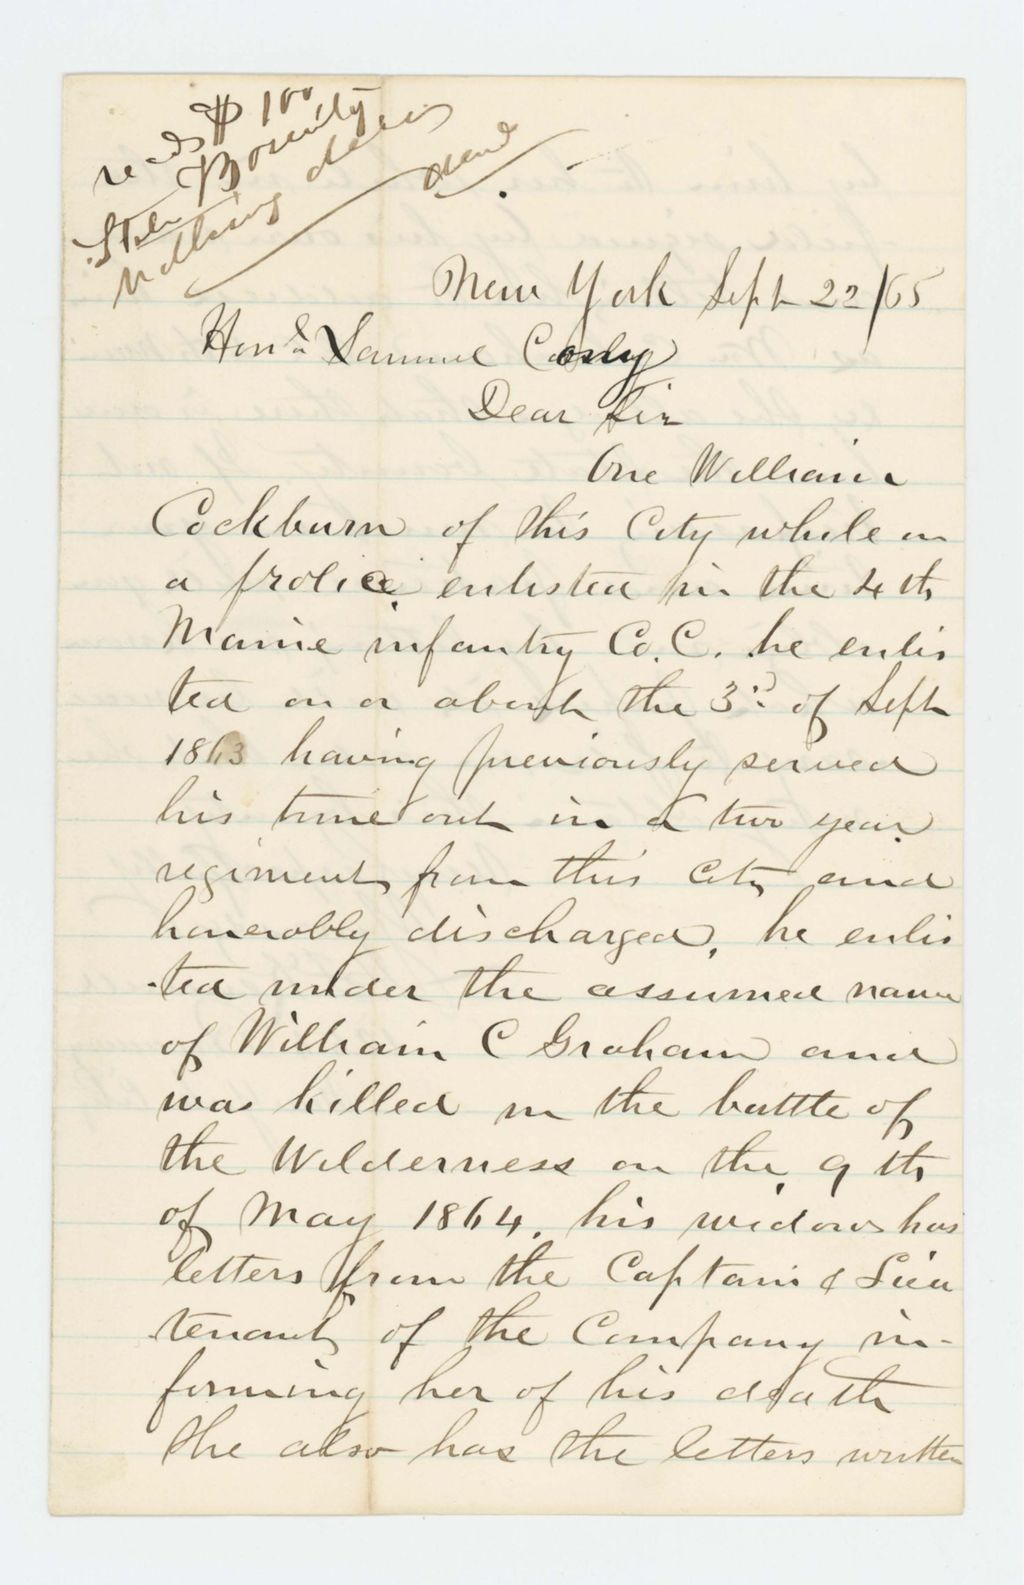 recd $100
State Bounty
Nothing due
New York Sept 22/65
Honl Samuel Cony
Dear Sir
One William
Cockburn of this City while on
a frolic enlisted in the 4th
Maine infantry Co. C. he enlis
ted on or about the 3d of Sept
1863 having previously served
his time out in a two year
regiment from this City and
honerably discharged, he enlis
-ted under the assumed name
of William C Graham and
was killed in the battle of
the Wilderness on the 9th
of May 1864. his widow has
letters from the Captain & Lieu
tenant of the Company in-
forming her of his death
She also has the letters written